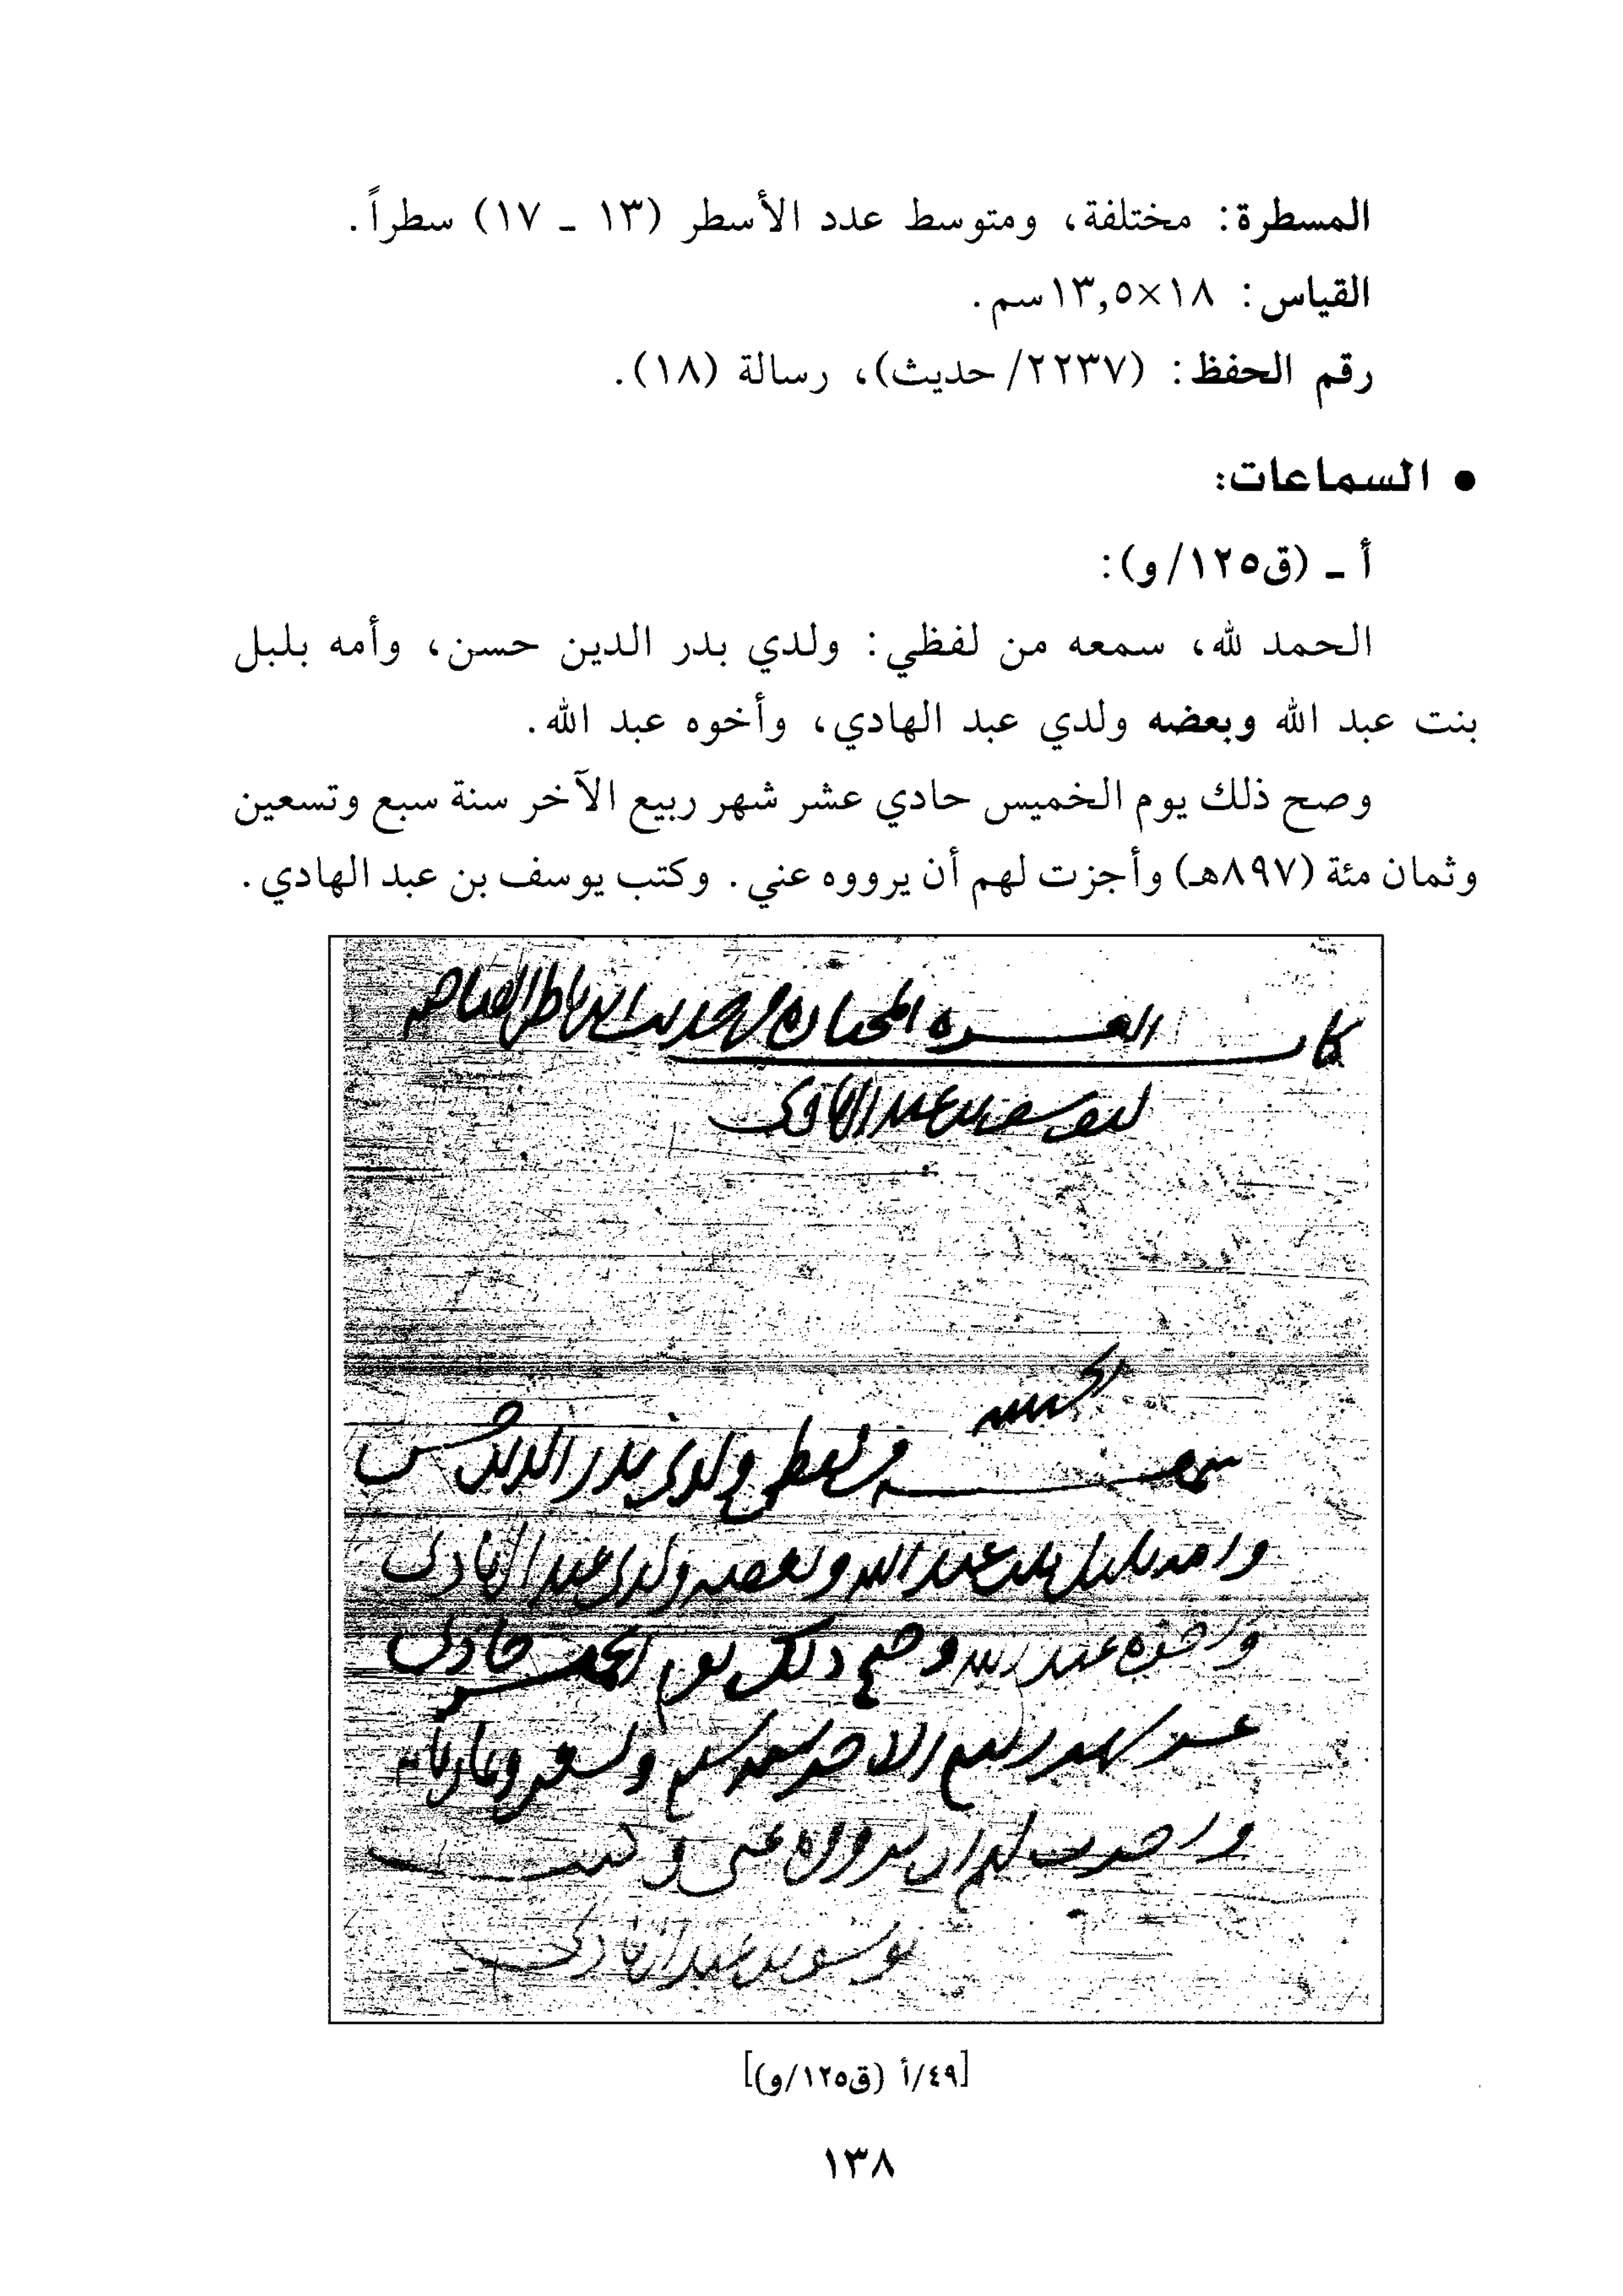 المسطرة: مختلفة، ومتوسط عدد الأسطر (١٣ ـ ١٧) سطراً.
القياس: ١٨×١٣,٥سم.
رقم الحفظ: (٢٢٣٧/حديث)، رسالة (١٨).
● السماعات:
أ ـ (ق١٢٥/و):
الحمد لله، سمعه من لفظي: ولدي بدر الدين حسن، وأمه بلبل
بنت عبد الله وبعضه ولدي عبد الهادي، وأخوه عبد الله.
وصح ذلك يوم الخميس حادي عشر شهر ربيع الآخر سنة سبع وتسعين
وثمان مئة (٨٩٧هـ) وأجزت لهم أن يرووه عني. وكتب يوسف بن عبد الهادي.
كتاب العشرة المختارة من حديث
ليوسف بن عبد الهادي
الحمد لله
سمعه من لفظي ولدي بدر الدين حسن
وامه بلبل بنت عبد الله وبعضه ولدي عبد الهادي
واخوه عبد الله وصح ذلك يوم الخميس حادي
عشر شهر ربيع الاخر سنة سبع وتسعين وثمان مائة
واجزت لهم ان يرووه عني وكتب
يوسف بن عبد الهادي
[٤٩/أ (ق١٢٥/و)]
١٣٨